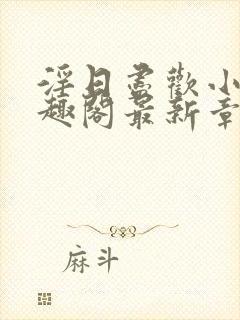 淫日尽歡小
趣閣最新章
麻斗